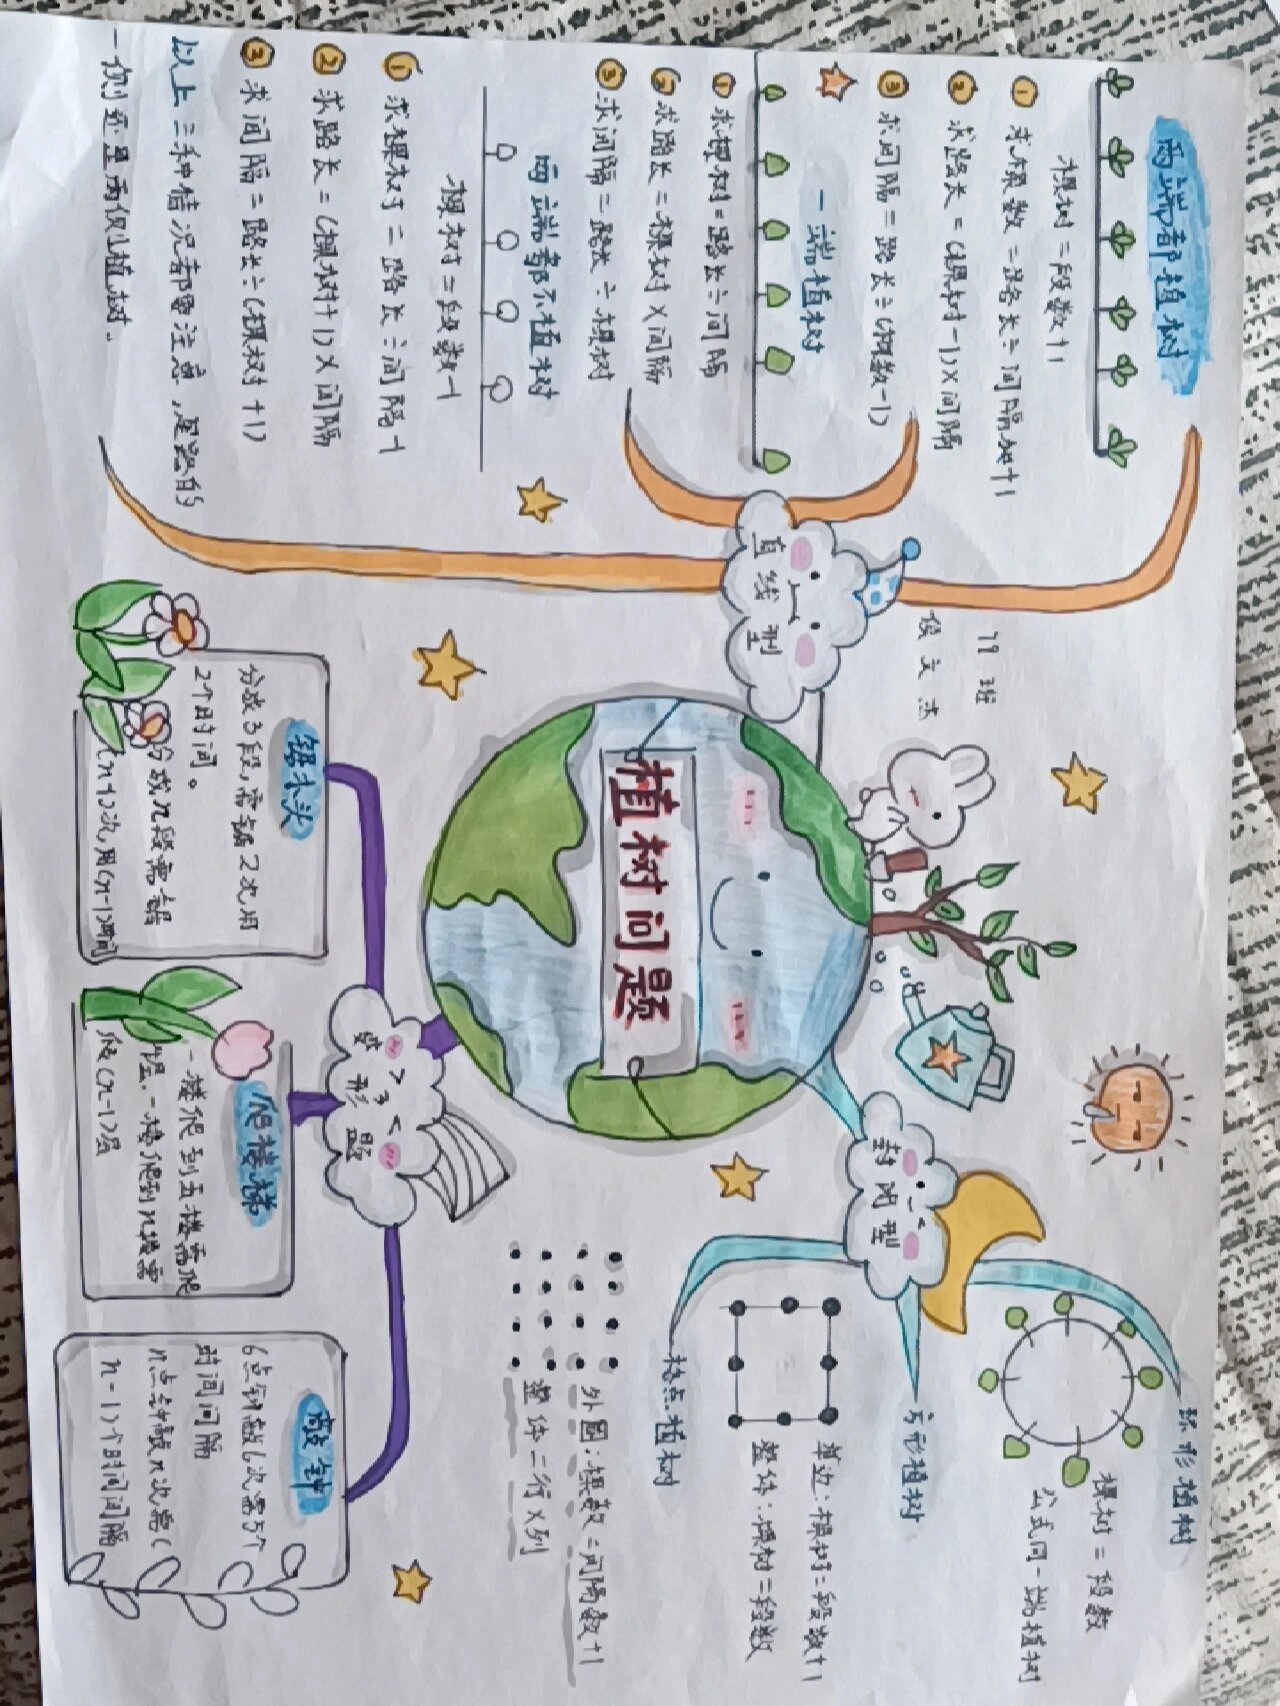 植树问题
直线型
11班
侯文杰
两端都植树
棵树=段数+1
① 求棵数=路长÷间隔+1
② 求路长=(棵树-1)×间隔
③ 求间隔=路长÷(棵数-1)
一端植树
① 求棵树=路长÷间隔
② 求路长=棵树×间隔
③ 求间隔=路长÷棵树
两端都不植树
棵树=段数-1
① 求棵树=路长÷间隔-1
② 求路长=(棵树+1)×间隔
③ 求间隔=路长÷(棵树+1)
以上三种情况都要注意,是路的
一侧还是两侧植树.
封闭型
环形植树
棵树=段数
公式同一端植树
方形植树
单边:棵树=段数+1
整体:棵树=段数
格点植树
外围:棵数=间隔数+1
整体=行×列
变形题
锯木头
分成3段,需锯2次用
2个时间。
分成n段需锯
(n-1)次,用(n-1)时间
爬楼梯
一楼爬到五楼需爬
4层.一楼爬到n楼需
爬(n-1)层
敲钟
6点钟敲6次需5个
时间间隔
n点钟敲n次需(
n-1)个时间间隔